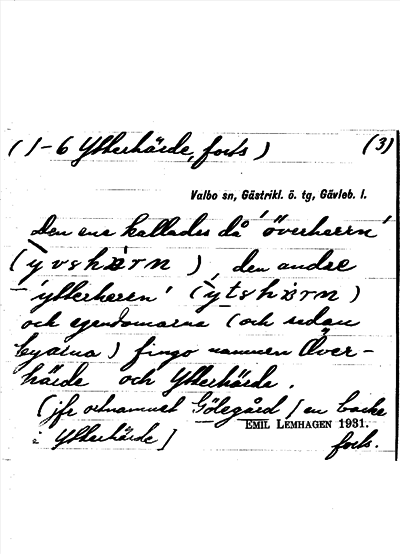 (1-6 Ytterhärde, forts) (3)
Valbo sn, Gästrikl. ö. tg, Gävleb. l.
Den ena kallades då 'överherrn'
(`yvshärn), den andre
'ytterherrn' (`ytshärn)
och egendomarna (och sedan
byarna) fingo namnen Över-
härde och Ytterhärde.
(jfr ortnamnet Gölegård [en backe
i Ytterhärde]
EMIL LEMHAGEN 1931.
forts.